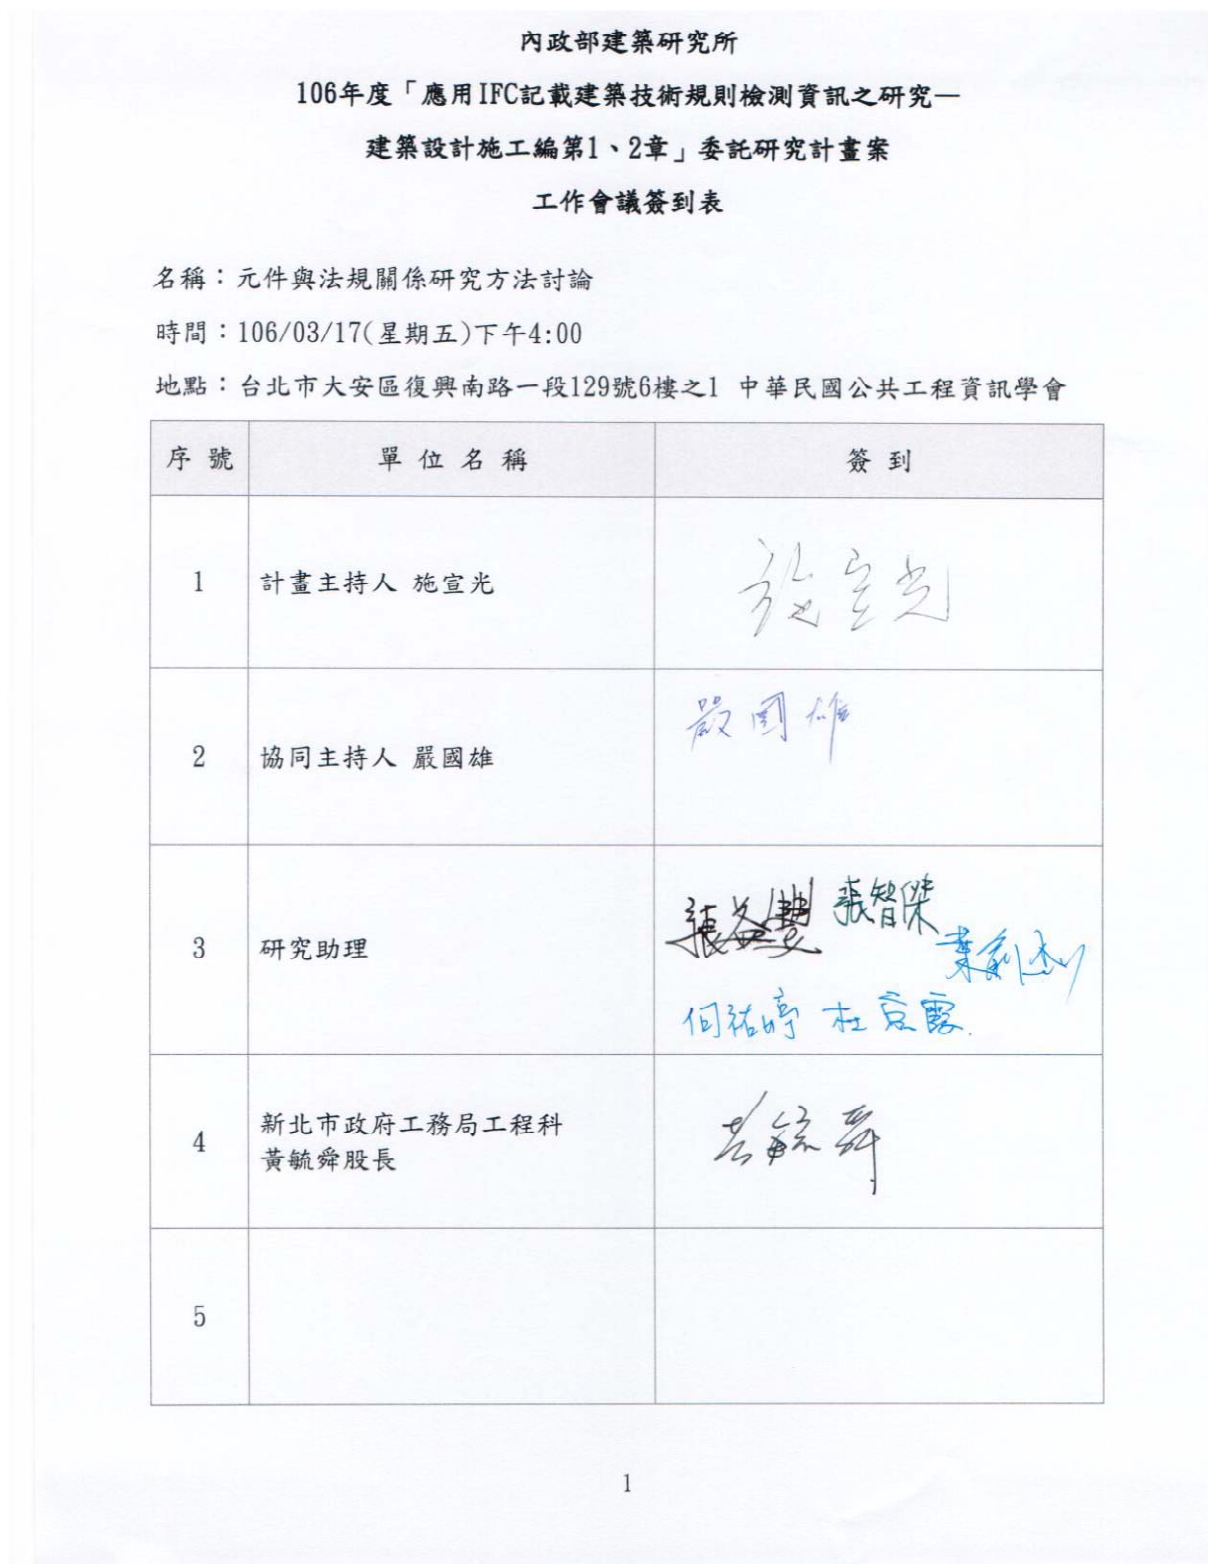 內政部建築研究所
106年度「應用IFC記載建築技術規則檢測資訊之研究—
建築設計施工編第1、2章」委託研究計畫案
工作會議簽到表
名稱：元件與法規關係研究方法討論
時間：106/03/17(星期五)下午4:00
地點：台北市大安區復興南路一段129號6樓之1 中華民國公共工程資訊學會
序號 單位名稱 簽到
1 計畫主持人 施宣光 施宣光
2 協同主持人 嚴國雄 嚴國雄
3 研究助理
張智傑
何祐婷 杜京霞
4 新北市政府工務局工程科
黃毓舜股長 黃毓舜
5
1